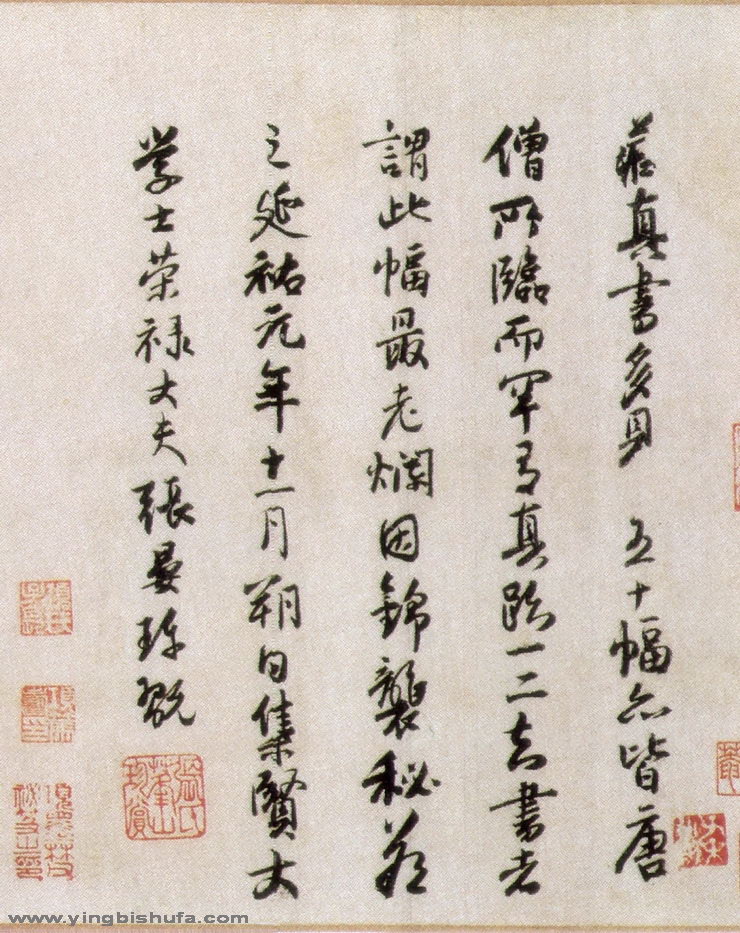 藏真書多見 五十幅亦皆唐
僧所臨而罕有真跡一二知書者
謂此幅最老爛因錦襲秘藏
之延祐元年十一月朔日集賢大
学士荣禄大夫張晏珍翫
www.yingbishufa.com